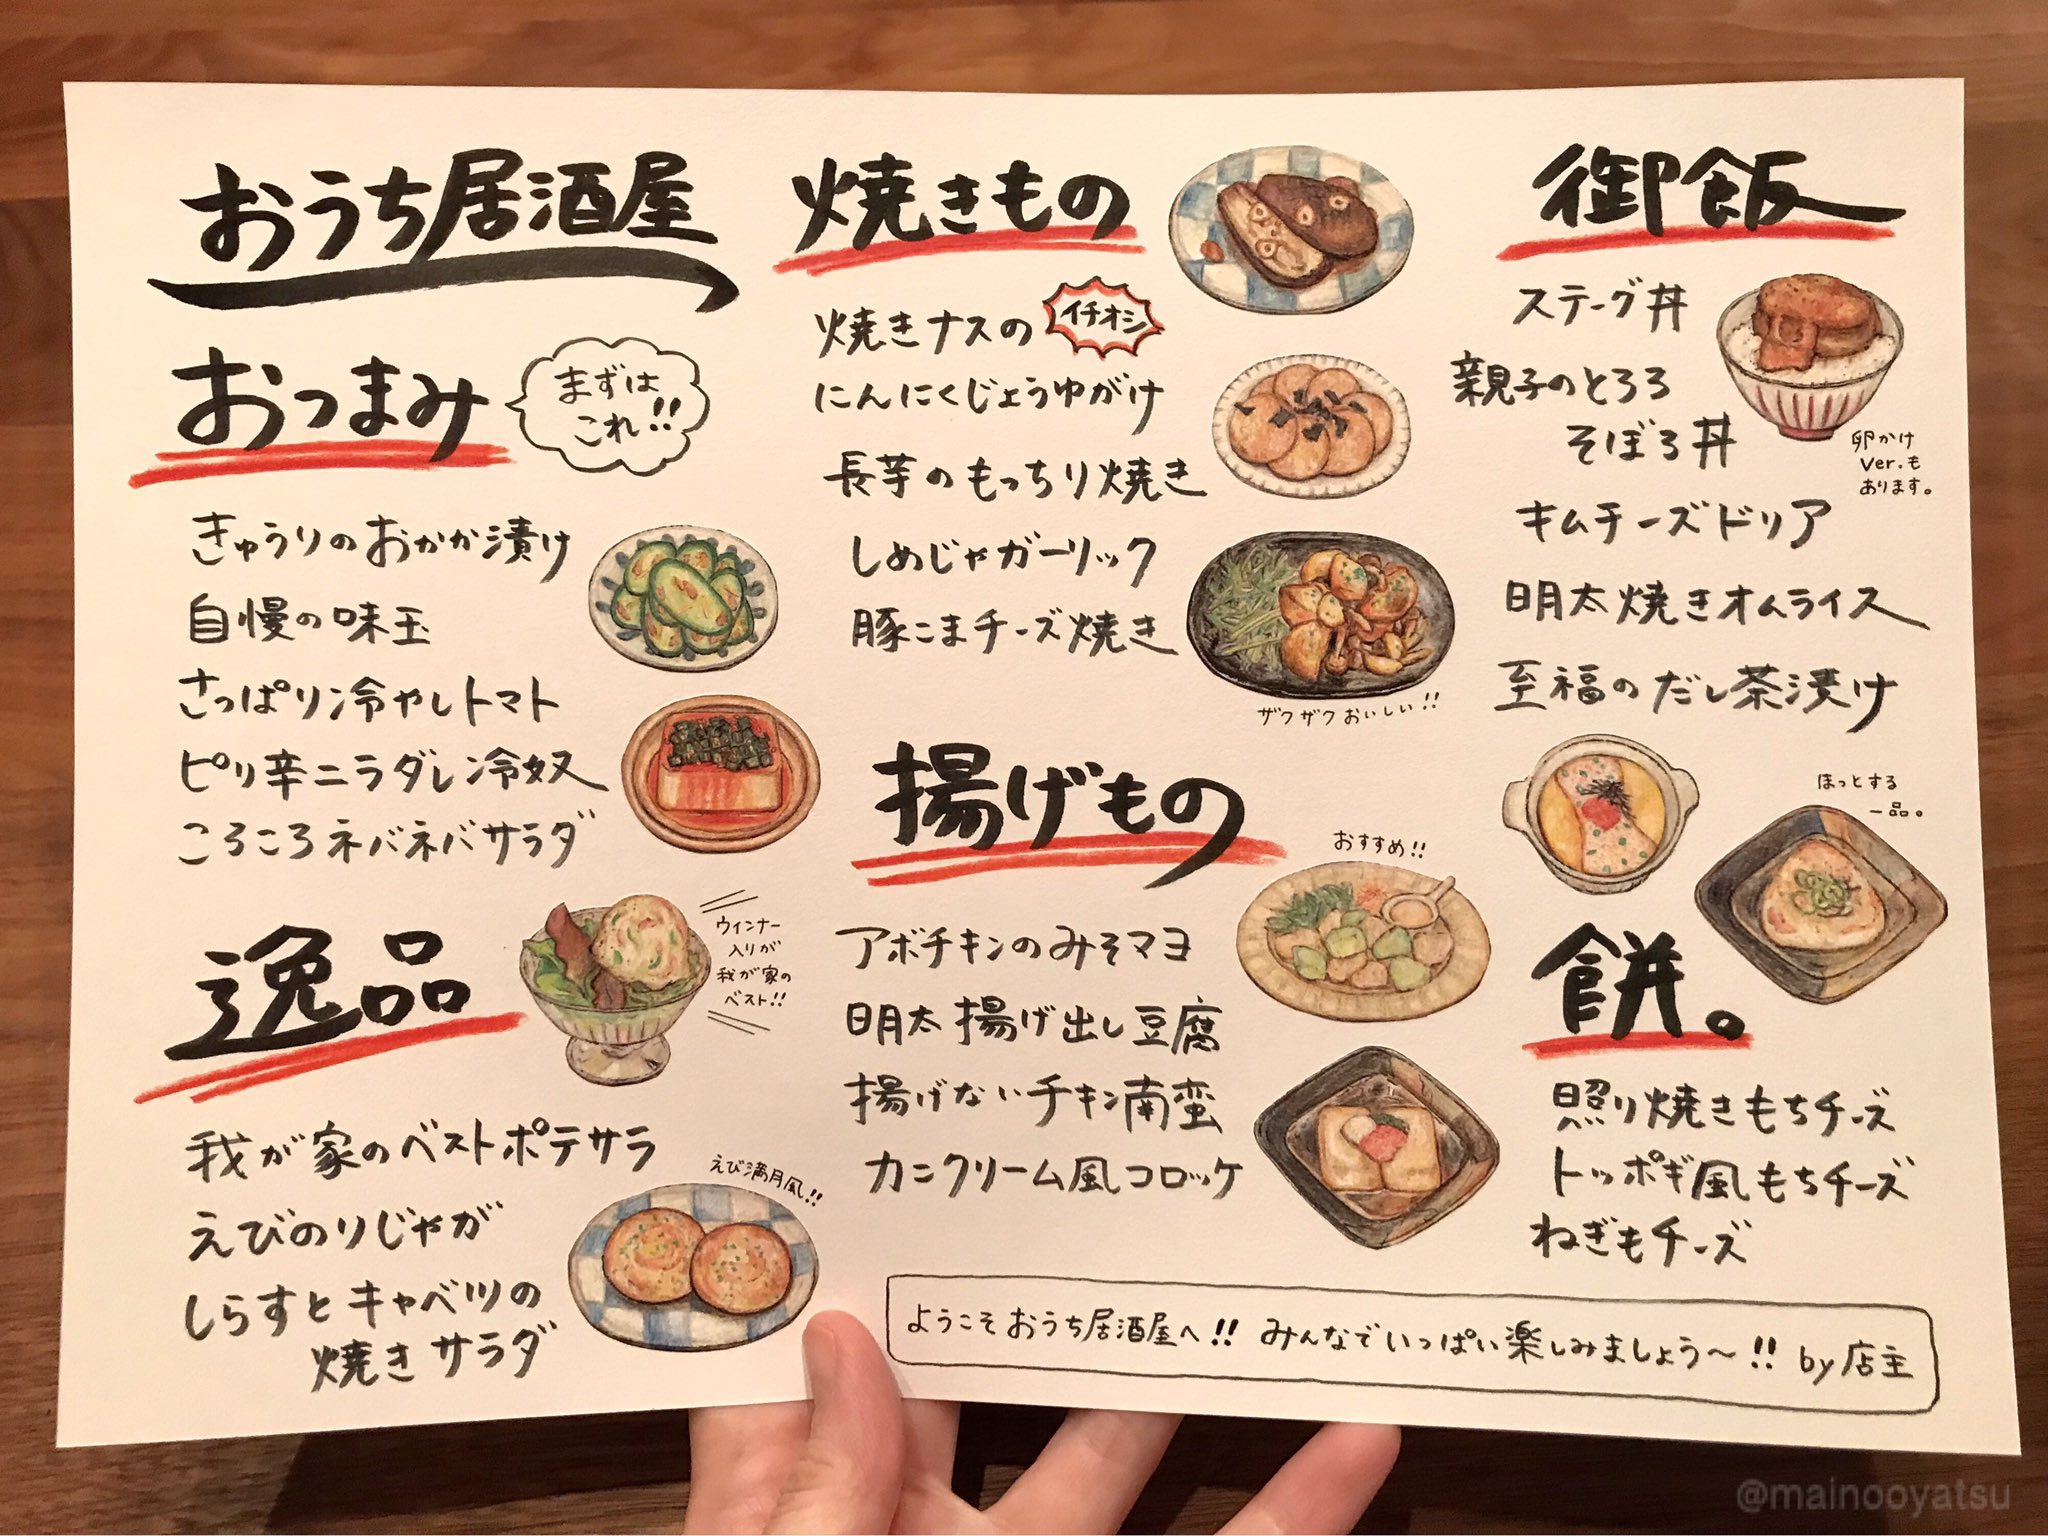 おうち居酒屋
おつまみ
まずは
これ!!
きゅうりのおかか漬け
自慢の味玉
さっぱり冷やしトマト
ピリ辛ニラダレ冷奴
ころころネバネバサラダ
逸品
ウィンナー
入りが
我が家の
ベスト!!
我が家のベストポテサラ
えびのりじゃが
えび満月風!!
しらすとキャベツの
焼きサラダ
焼きもの
焼きナスの
イチオシ
にんにくじょうゆがけ
長芋のもっちり焼き
しめじゃガーリック
豚こまチーズ焼き
ザクザクおいしい!!
揚げもの
おすすめ!!
アボチキンのみそマヨ
明太揚げ出し豆腐
揚げないチキン南蛮
カニクリーム風コロッケ
御飯
ステーグ丼
親子のとろろ
そぼろ丼
卵かけ
Ver.も
あります。
キムチーズドリア
明太焼きオムライス
至福のだし茶漬け
ほっとする
一品。
餅。
照り焼きもちチーズ
トッポギ風もちチーズ
ねぎもチーズ
ようこそおうち居酒屋へ!! みんなでいっぱい楽しみましょう〜!! by店主
@mainooyatsu